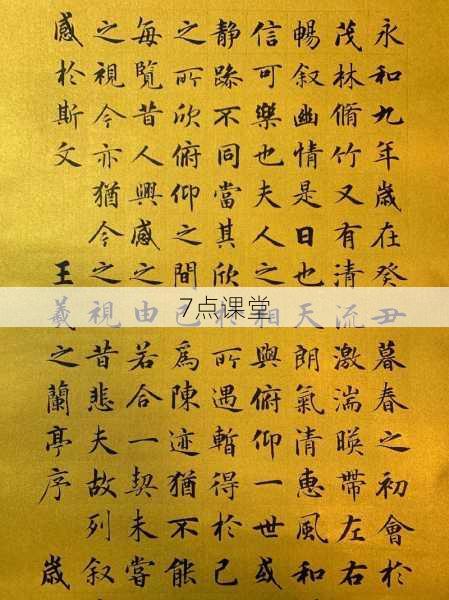 永和九年歲在癸丑暮春之初會於
茂林脩竹又有清流激湍暎帶左右
暢叙幽情是日也天朗氣清惠風和
信可樂也夫人之相與俯仰一世或
静躁不同當其欣於所遇暫得於己
之所欣俯仰之間已爲陳迹猶不能
每覽昔人興感之由若合一契未嘗
之視今亦猶今之視昔悲夫故列叙
感於斯文 王羲之蘭亭序 歲
7点课堂